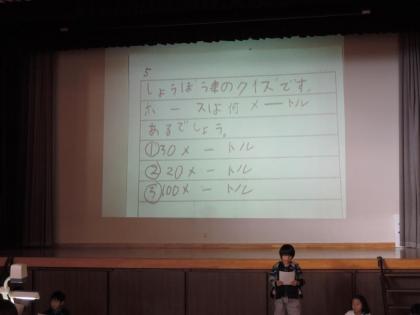 5
しょうぼう車のクイズです。
ホースは何メートル
あるでしょう。
①30メートル
②20メートル
③100メートル